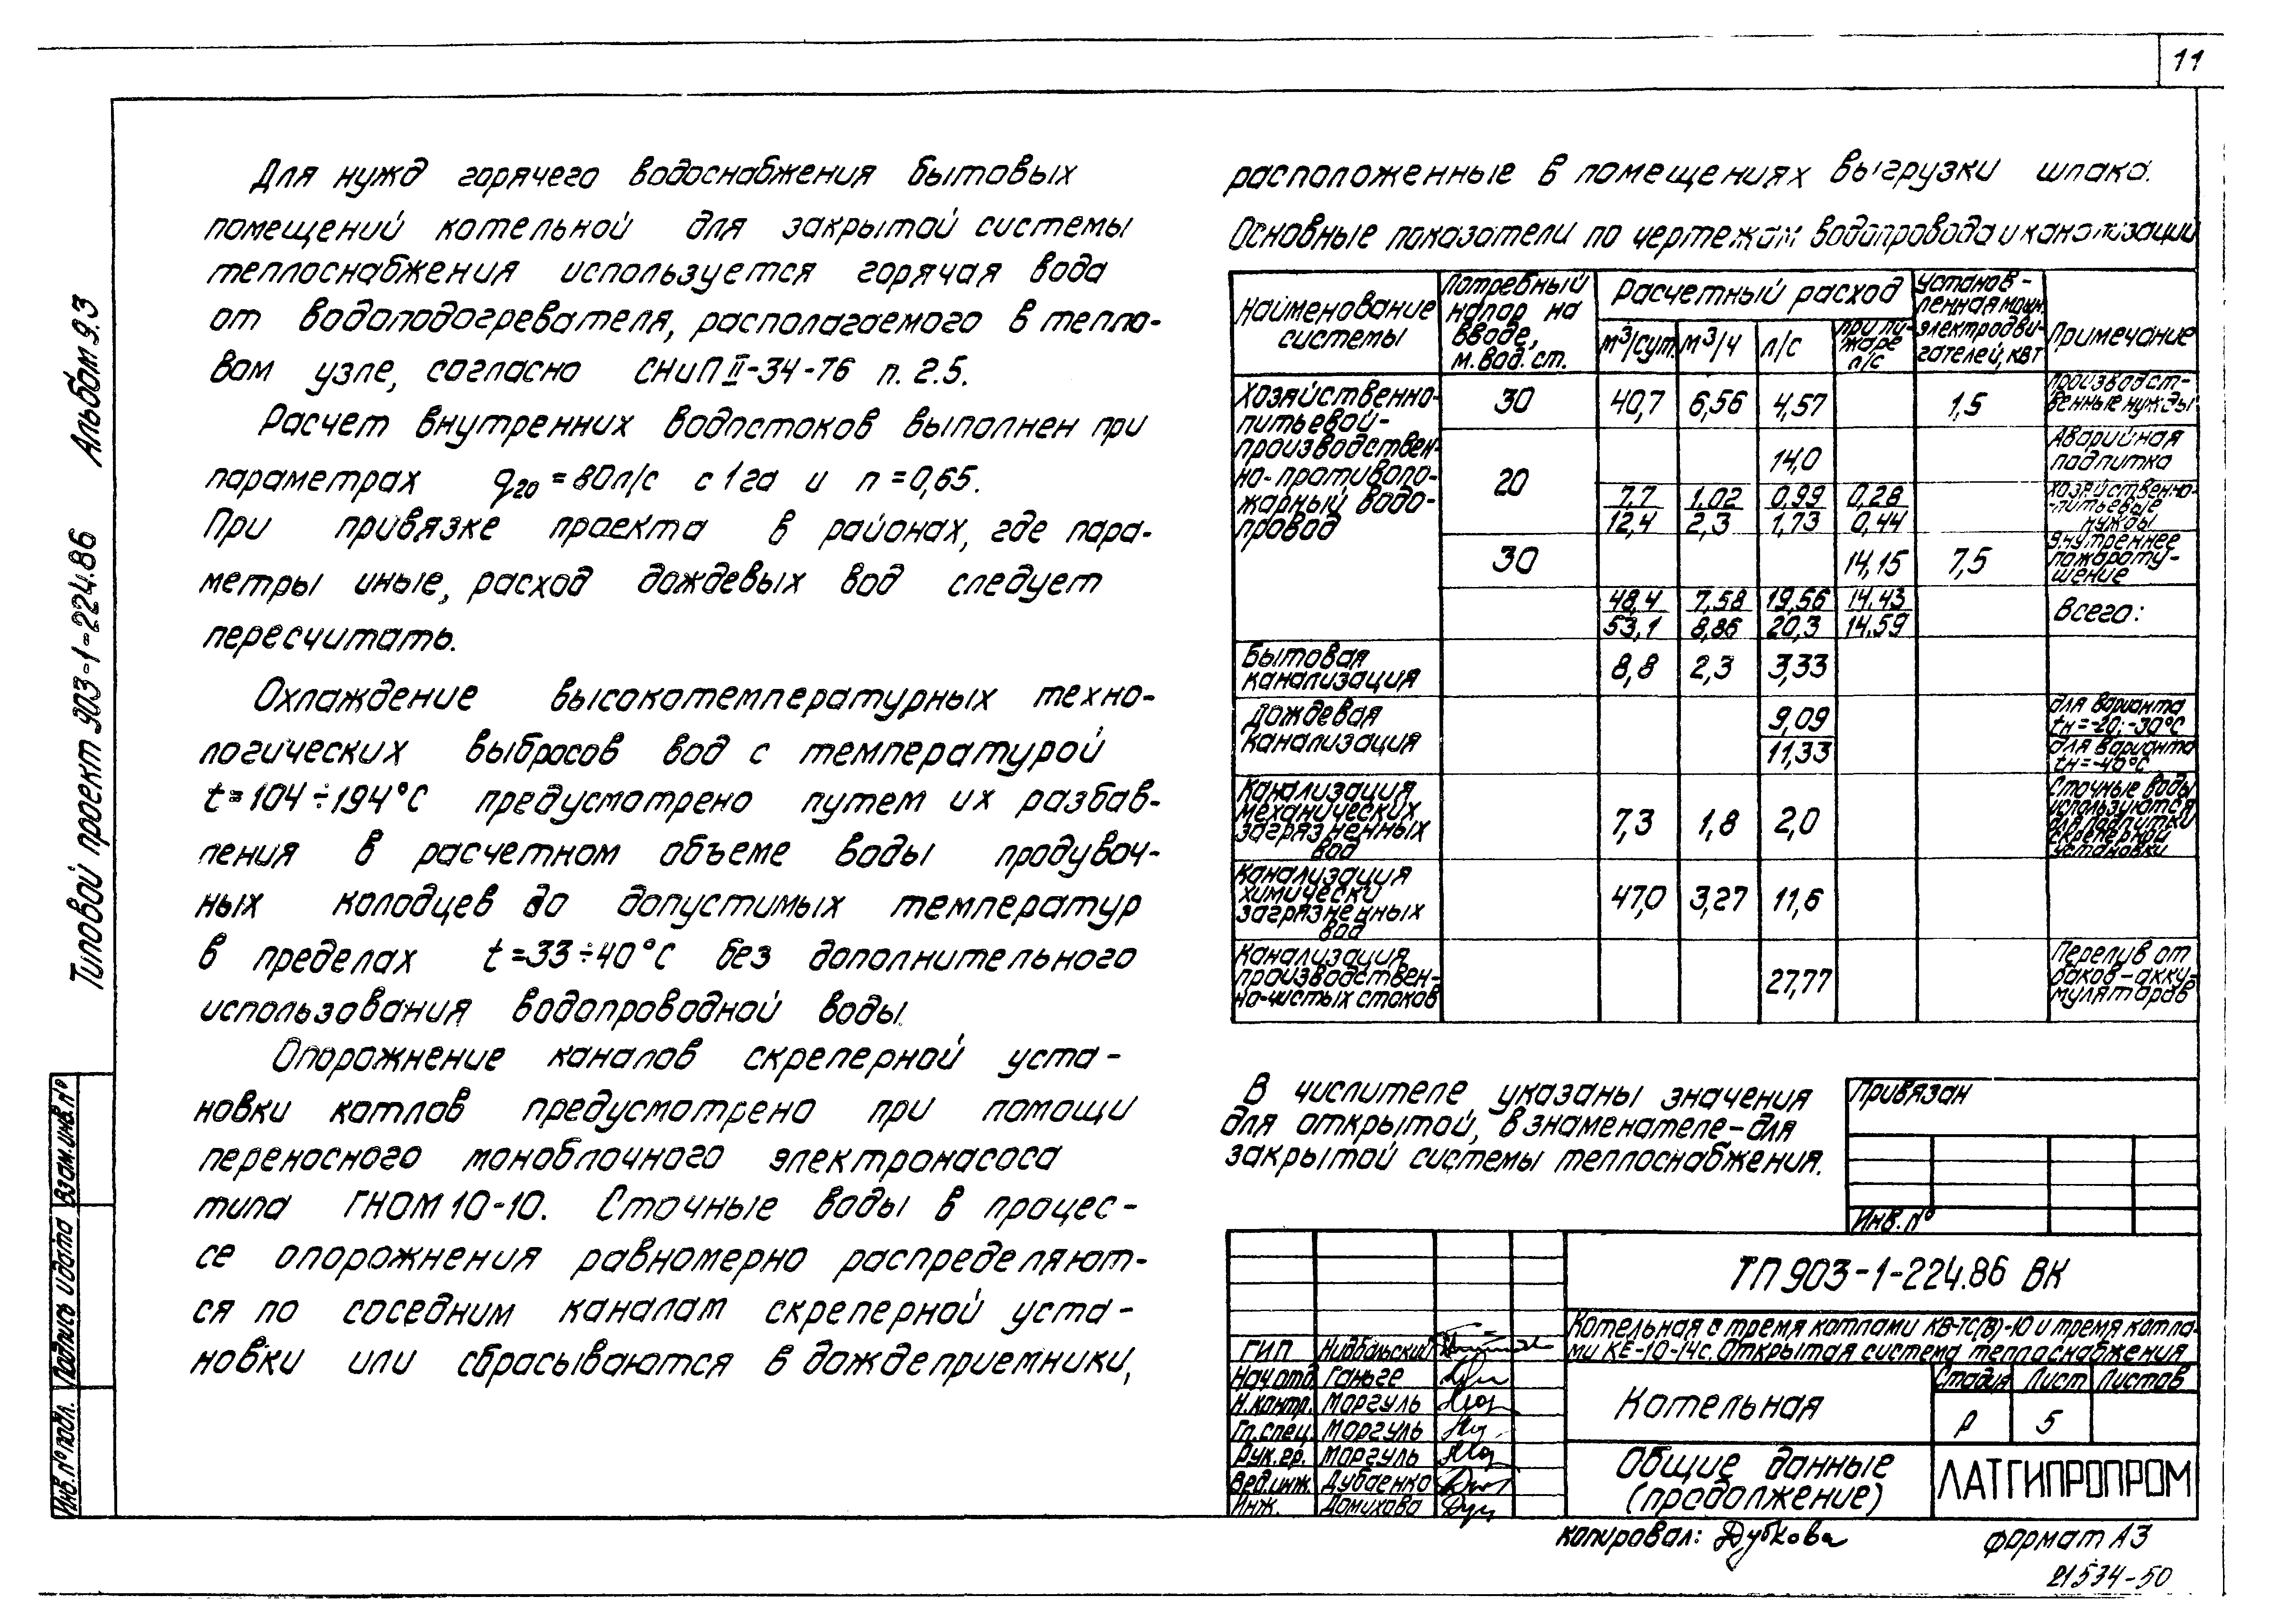 11
Для нужд горячего водоснабжения бытовых
помещений котельной для закрытой системы
теплоснабжения используется горячая вода
от водоподогревателя, располагаемого в тепло-
вом узле, согласно СНиП II-34-76 п. 2.5.
Расчет внутренних водостоков выполнен при
параметрах q20 = 80л/с с 1га и n = 0,65.
При привязке проекта в районах, где пара-
метры иные, расход дождевых вод следует
пересчитать.
Охлаждение высокотемпературных техно-
логических выбросов вод с температурой
t=104÷194°С предусмотрено путем их разбав-
ления в расчетном объеме воды продувоч-
ных колодцев до допустимых температур
в пределах t=33÷40°С без дополнительного
использования водопроводной воды.
Опорожнение каналов скреперной уста-
новки котлов предусмотрено при помощи
переносного моноблочного электронасоса
типа ГНОМ 10-10. Сточные воды в процес-
се опорожнения равномерно распределяют-
ся по соседним каналам скреперной уста-
новки или сбрасываются в дождеприемники,
расположенные в помещениях выгрузки шлака.
Основные показатели по чертежам водопровода и канализации
Наименование системы
Потребный напор на вводе, м. вод. ст.
Расчетный расход
м³/сут. м³/ч л/с при пожаре л/с
Установ-ленная мощн. электродви-гателей, квт
Примечание
Хозяйственно-питьевой-производствен-но-противопо-жарный водо-провод
30 40,7 6,56 4,57 1,5 Производст-венные нужды
20 14,0 Аварийная подпитка
7,7 1,02 0,99 0,28 Хозяйственно-питьевые нужды
12,4 2,3 1,73 0,44
30 14,15 7,5 Внутреннее пожароту-шение
48,4 7,58 19,56 14.43 Всего:
53,1 8,86 20,3 14.59
Бытовая канализация 8,8 2,3 3,33
Дождевая канализация 9,09 для варианта tн=-20;-30°С
11,33 для варианта tн=-40°С
Канализация механических загрязненных вод 7,3 1,8 2,0 Сточные воды используются для подпитки скреперной установки
Канализация химически загрязненных вод 47,0 3,27 11,6
Канализация производствен-но-чистых стоков 27,77 Перелив от баков-акку-муляторов
В числителе указаны значения
для открытой, в знаменателе-для
закрытой системы теплоснабжения.
Привязан
Инв. №
ТП 903-1-224.86 ВК
Котельная с тремя котлами КВ-ТС(В)-10 и тремя котла-
ми КЕ-10-14с. Открытая система теплоснабжения
ГИП Нидбальский
Нач.отд. Ганьге
Н.контр. Моргуль
Гл.спец. Моргуль
Рук.гр. Моргуль
Вед.инж. Дубаенко
Инж. Домихова
Котельная
Стадия Лист Листов
Р 5
Общие данные
(продолжение)
ЛАТГИПРОПРОМ
Копировал: Дубкова
Формат А3
21534-50
Альбом 9.3
Типовой проект 903-1-224.86
Взам.инв.№
Подпись и дата
Инв.№ подл.